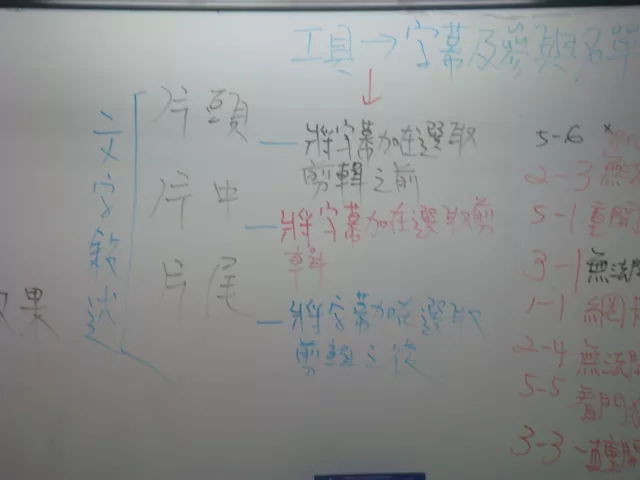 工具→字幕及參與名單
文字敘述
片頭
將字幕加在選取
剪輯之前
片中
將字幕加在選取剪
輯
片尾
將字幕加在選取
剪輯之後
果
5-6
2-3 無
5-1 重開
3-1 無法開
1-1 網
2-4 無法開
5-5
3-3 一直重開